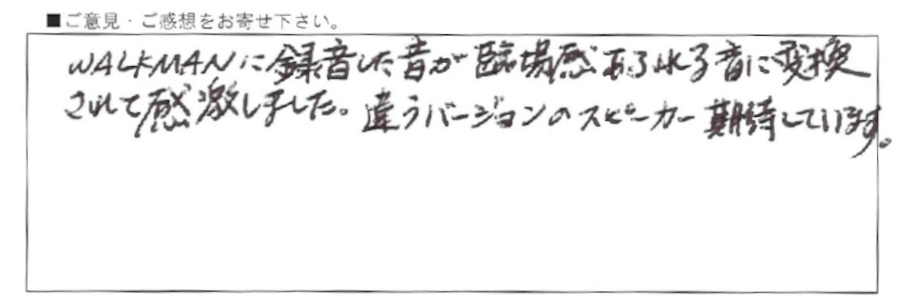 ■ご意見・ご感想をお寄せ下さい。
WALKMANに録音した音が臨場感あふれる音に変換
されて感激しました。違うバージョンのスピーカー期待しています。